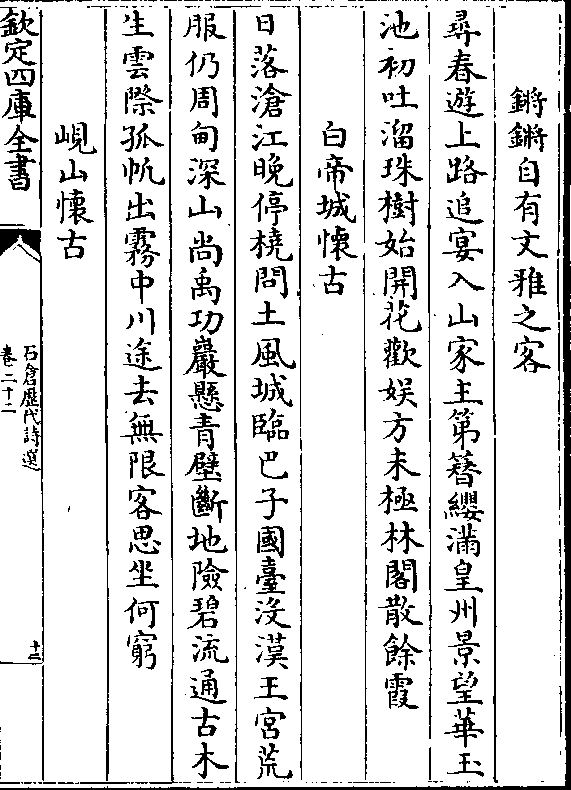 鏘鏘自有文雅之客
尋春遊上路追宴入山家主第簪纓滿皇州景望華玉
池初吐溜珠樹始開花歡娱方未極林閣散餘霞
白帝城懷古
日落滄江晚停橈問土風城臨巴子國臺没漢王宫荒
服仍周甸深山尚禹功巖懸青壁斷地險碧流通古木
生雲際孤帆出霧中川途去無限客思坐何窮
峴山懷古
欽定四庫全書
石倉歷代詩選
卷二十二
十二